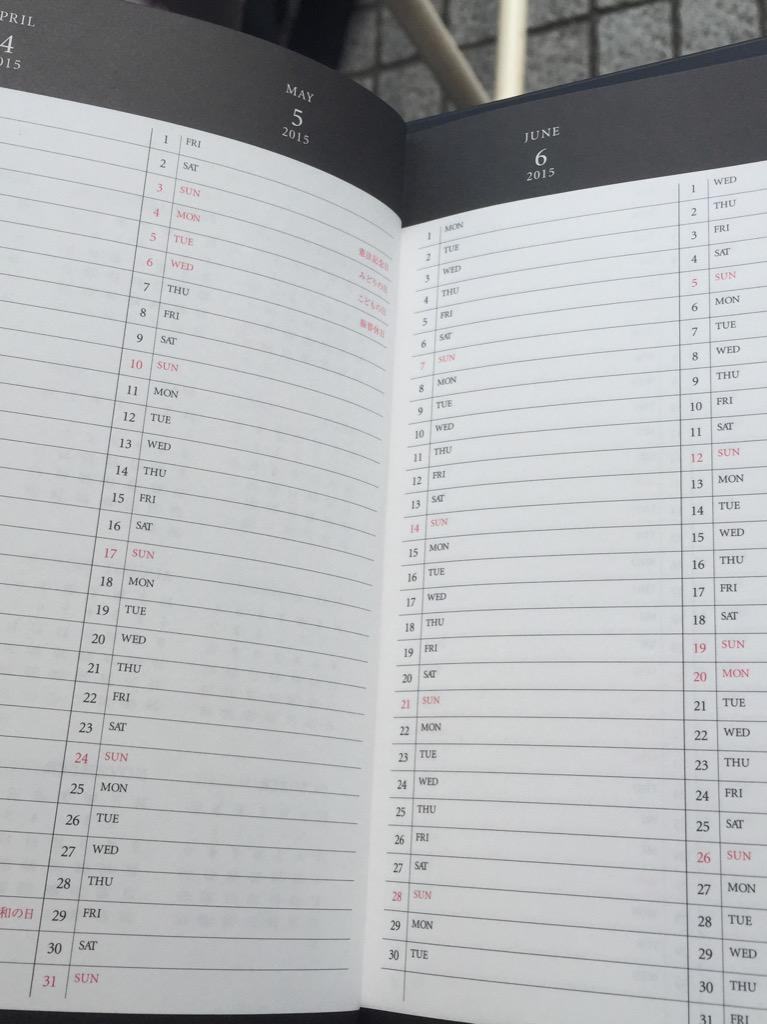 PRIL
4
015
和の日
MAY
5
2015
1 FRI
2 SAT
3 SUN 憲法記念日
4 MON みどりの日
5 TUE こどもの日
6 WED 振替休日
7 THU
8 FRI
9 SAT
10 SUN
11 MON
12 TUE
13 WED
14 THU
15 FRI
16 SAT
17 SUN
18 MON
19 TUE
20 WED
21 THU
22 FRI
23 SAT
24 SUN
25 MON
26 TUE
27 WED
28 THU
29 FRI
30 SAT
31 SUN
JUNE
6
2015
1 MON
2 TUE
3 WED
4 THU
5 FRI
6 SAT
7 SUN
8 MON
9 TUE
10 WED
11 THU
12 FRI
13 SAT
14 SUN
15 MON
16 TUE
17 WED
18 THU
19 FRI
20 SAT
21 SUN
22 MON
23 TUE
24 WED
25 THU
26 FRI
27 SAT
28 SUN
29 MON
30 TUE
1 WED
2 THU
3 FRI
4 SAT
5 SUN
6 MON
7 TUE
8 WED
9 THU
10 FRI
11 SAT
12 SUN
13 MON
14 TUE
15 WED
16 THU
17 FRI
18 SAT
19 SUN
20 MON
21 TUE
22 WED
23 THU
24 FRI
25 SAT
26 SUN
27 MON
28 TUE
29 WED
30 THU
31 FRI